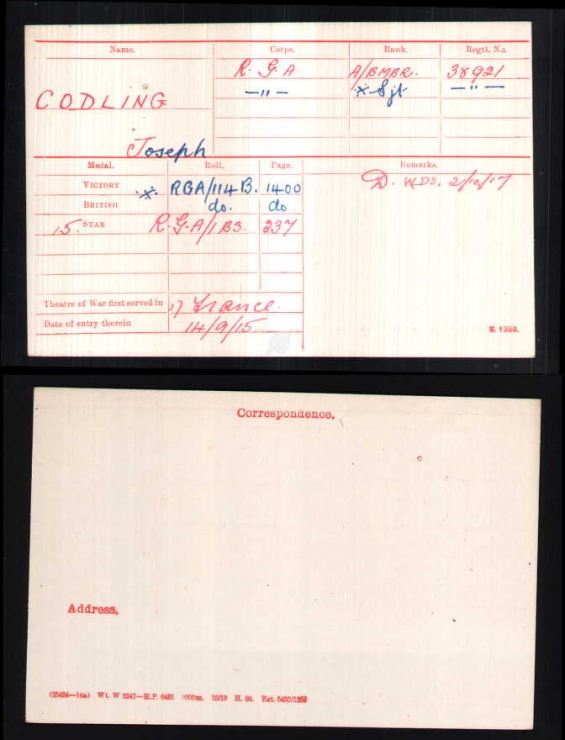 Name. Corps. Rank. Regtl. No.
R. G. A. A/BMBR. 38921
—"— * Sjt —"—
CODLING
Joseph
Medal. Roll. Page. Remarks.
VICTORY * RGA/114B. 1400 D. WDS. 2/10/17
BRITISH do. do
15 STAR R.G.A/1B3. 237
Theatre of War first served in 1) France.
Date of entry therein 14/9/15
K. 1380.
Correspondence.
Address.
Wt. W 5347—H.P. 15/19 H. St.